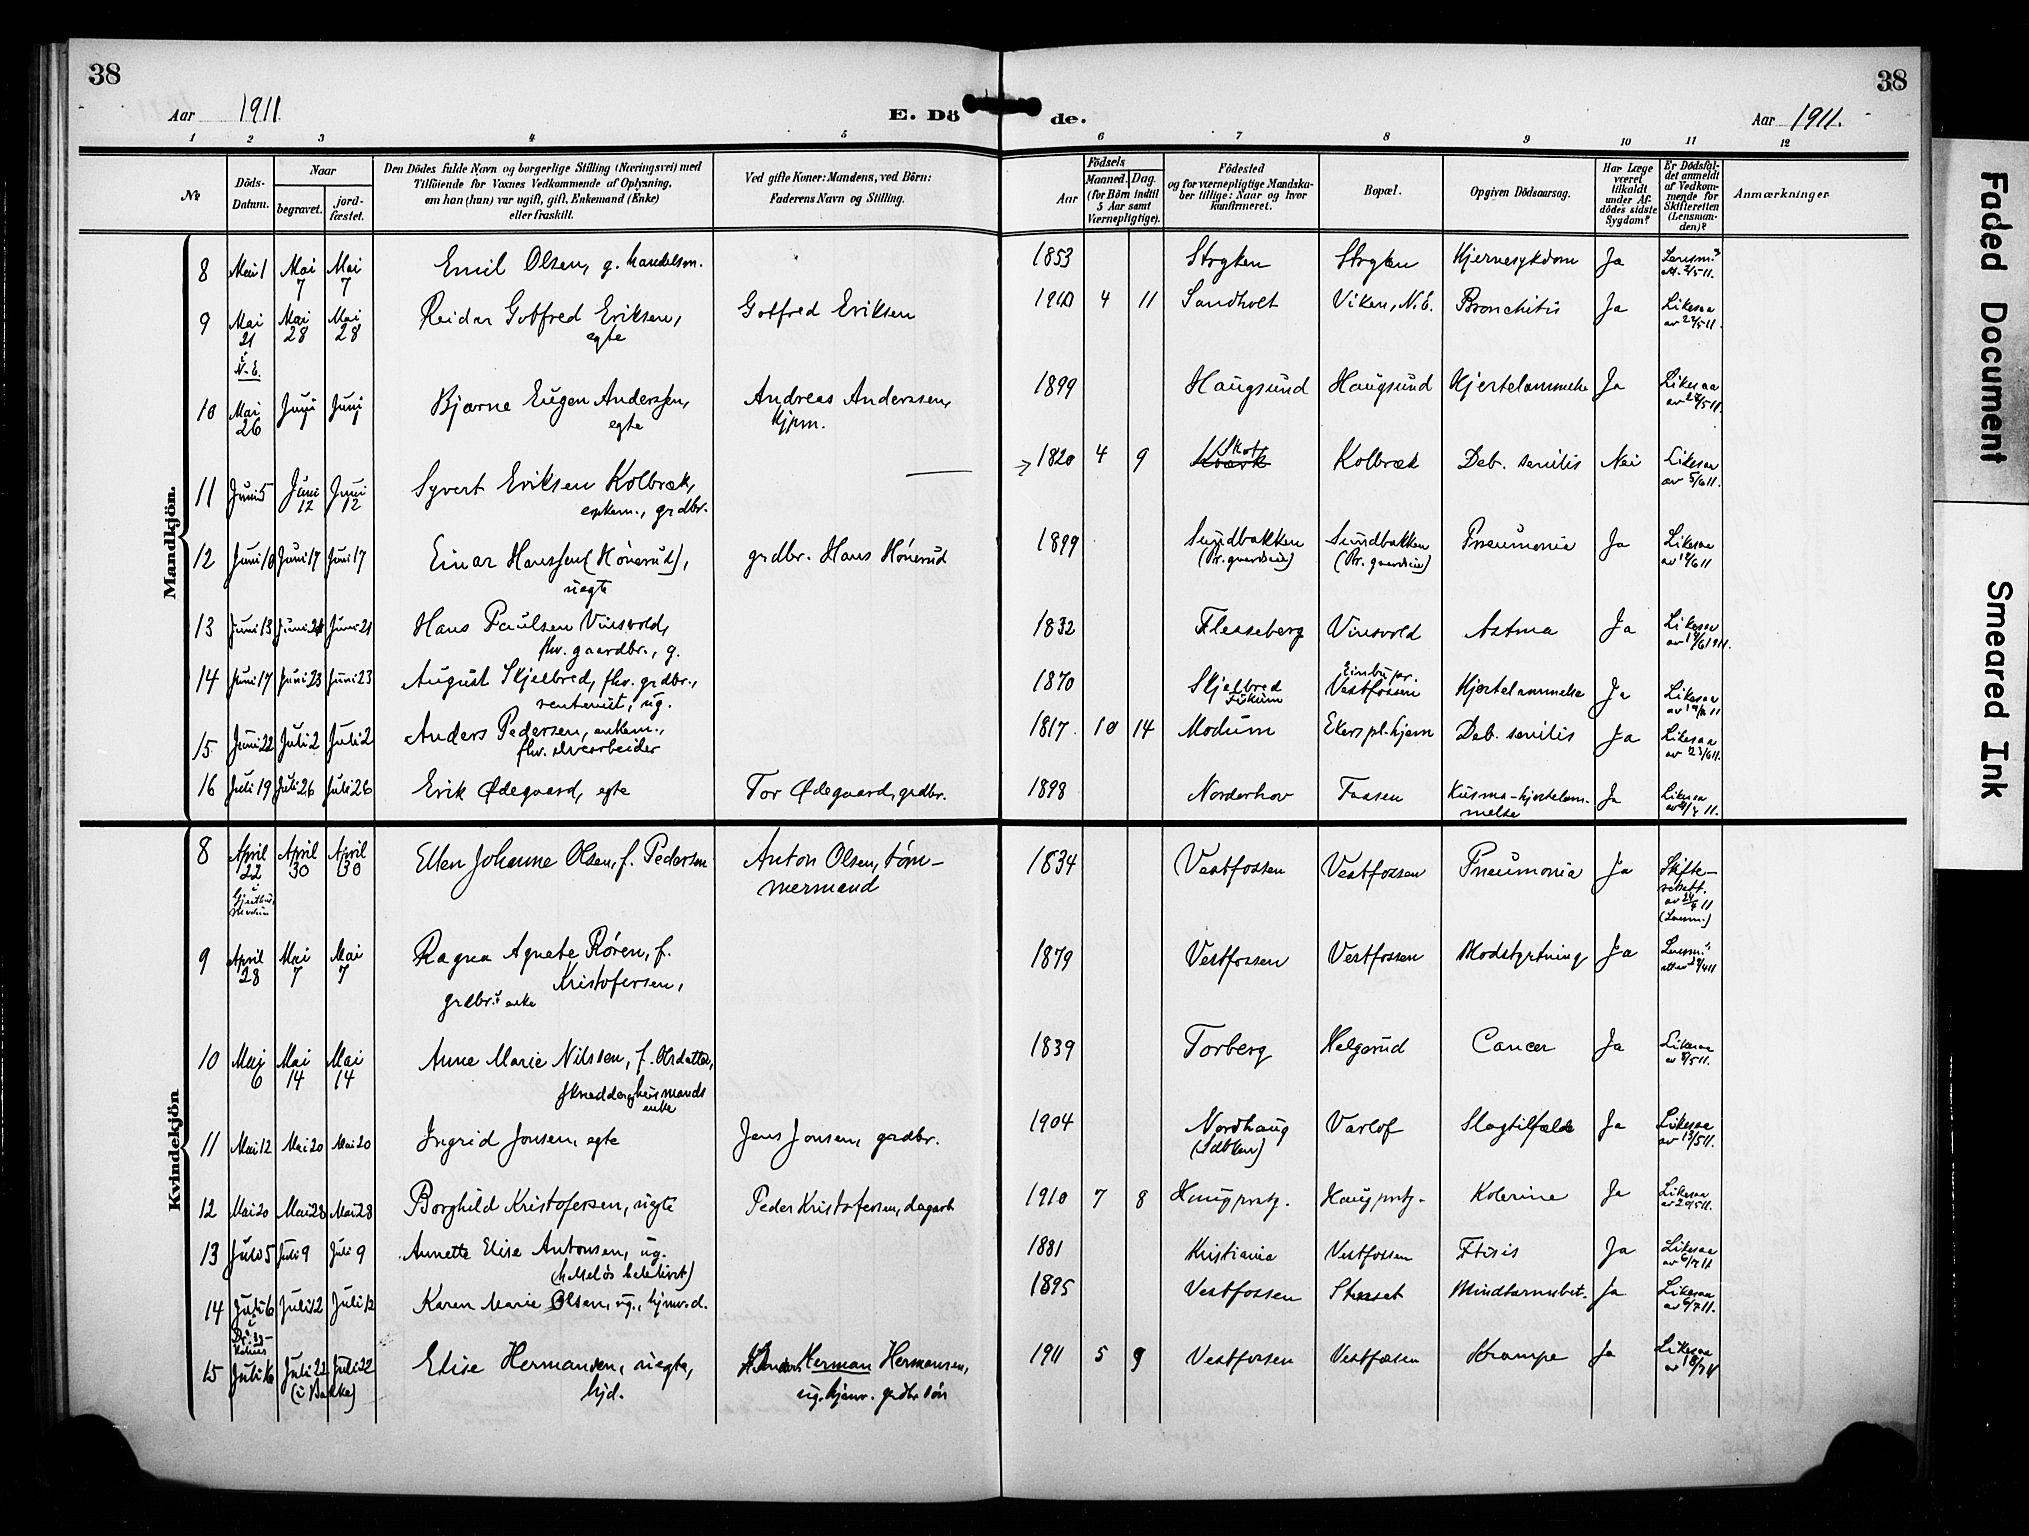 38
38
Aar 1911.
E. Dö de.
Aar 1911.
1 2 3 4 5 6 7 8 9 10 11 12
No
Döds-Datum.
Naar
begravet.
jord-fæstet.
Den Dödes fulde Navn og borgerlige Stilling (Næringsvei) med
Tilföiende for Voxnes Vedkommende af Oplysning,
om han (hun) var ugift, gift, Enkemand (Enke)
eller fraskilt.
Ved gifte Koner: Mandens, ved Börn:
Faderens Navn og Stilling.
Födsels
Aar
Maaned. Dag.
(for Börn indtil
5 Aar samt
Værnepligtige).
Födested
og for værnepligtige Mandska-
ber tillige: Naar og hvor
konfirmeret.
Bopæl.
Opgiven Dödsaarsag.
Har Læge
været
tilkaldt
under Af-
dödes sidste
Sygdom?
Er Dödsfal-
det anmeldt
af Vedkom-
mende for
Skifteretten
(Lensman-
den)?
Anmærkninger
Mandkjön.
8 Mai 1 Mai 7 Mai 7 Emil Olsen, g. handelsm. 1853 Stryken Stryken Hjernesykdom Ja Lensm. 2/5 11.
9 Mai 21 i N.E. Mai 28 Mai 28 Reidar Gotfred Eriksen, egte Gotfred Eriksen 1910 4 11 Sandholt Viken, N.E. Bronchitis Ja Likesaa av 22/5 11.
10 Mai 26 Juni Juni Bjarne Eugen Anderssen, egte Andreas Anderssen, kjpm. 1899 Haugsund Haugsund Hjertelammelse Ja Likesaa
11 Juni 5 Juni 12 Juni 12 Syvert Eriksen Kolbræk, enkem., grdbr. — 1820 4 9 Skot. Kolbræk Deb. senilis Nei Likesaa av 5/6 11.
12 Juni 10 Juni 17 Juni 17 Einar Hanssen (Hönerud), uegte grdbr. Hans Hönerud 1899 Sundbakken Sundbakken Pneumonia Ja Likesaa
13 Juni 13 Juni 21 Juni 21 Hans Paulsen Vinsvold, fhv. gaardbr., g. 1832 Flesseberg Vinsvold Astma Ja Likesaa
14 Juni 17 Juni 23 Juni 23 August Skjelbred, fhv. grdbr., rentenist, ug. 1870 Skjelbred Fiskum Vestfossen Hjertelammelse Ja Likesaa
15 Juni 22 Juli 2 Juli 2 Anders Pedersen, enkem., fhv. elvearbeider 1817 10 14 Modum Ekers pl. hjem Deb. senilis Ja Likesaa av 23/6 11.
16 Juli 19 Juli 26 Juli 26 Erik Ødegaard, egte Tor Ødegaard, grdbr. 1898 Norderhov Faasen Kusma-hjertelam-melse Ja Likesaa
Kvindekjön
8 April 22 April 30 April 30 Ellen Johanne Olsen, f. Pedersen Anton Olsen, töm-mermand 1834 Vestfossen Vestfossen Pneumonia Ja Skifte-
9 April 28 Mai 7 Mai 7 Ragna Agnete Rören, f. Kristofersen, grdbr. enke 1879 Vestfossen Vestfossen Blodstyrtning Ja Lensm.
10 Mai 6 Mai 14 Mai 14 Anne Marie Nilssen, f. Olsdatter, skrædder, husmands enke 1839 Torberg Helgerud Cancer Ja Likesaa av 8/5 11.
11 Mai 12 Mai 20 Mai 20 Ingrid Jonsen, egte Jens Jonsen, grdbr. 1904 Nordhaug Varlof Slagtilfælde Ja Likesaa av 13/5 11.
12 Mai 20 Mai 28 Mai 28 Borghild Kristofersen, uegte Peder Kristofersen, dagarb 1910 7 8 Haug prstg. Haug prstg. Kolerine Ja Likesaa
13 Juli 5 Juli 9 Juli 9 Annette Elise Antonsen, ug. 1881 Kristiania Vestfossen Ftisis Ja Likesaa av 6/7 11
14 Juli 6 Juli 12 Juli 12 Karen Marie Olsen, ug., 1895 Vestfossen Stenset Blindtarmsbet. Ja Likesaa
15 Juli 16 Juli 22 (i Bakke) Juli 22 Elise Hermansen, uegte, hjd. Herman Hermansen, ug. grdbr. sön 1911 5 9 Vestfossen Vestfossen Krampe Ja Likesaa av 18/7 11
Faded Document
Smeared Ink